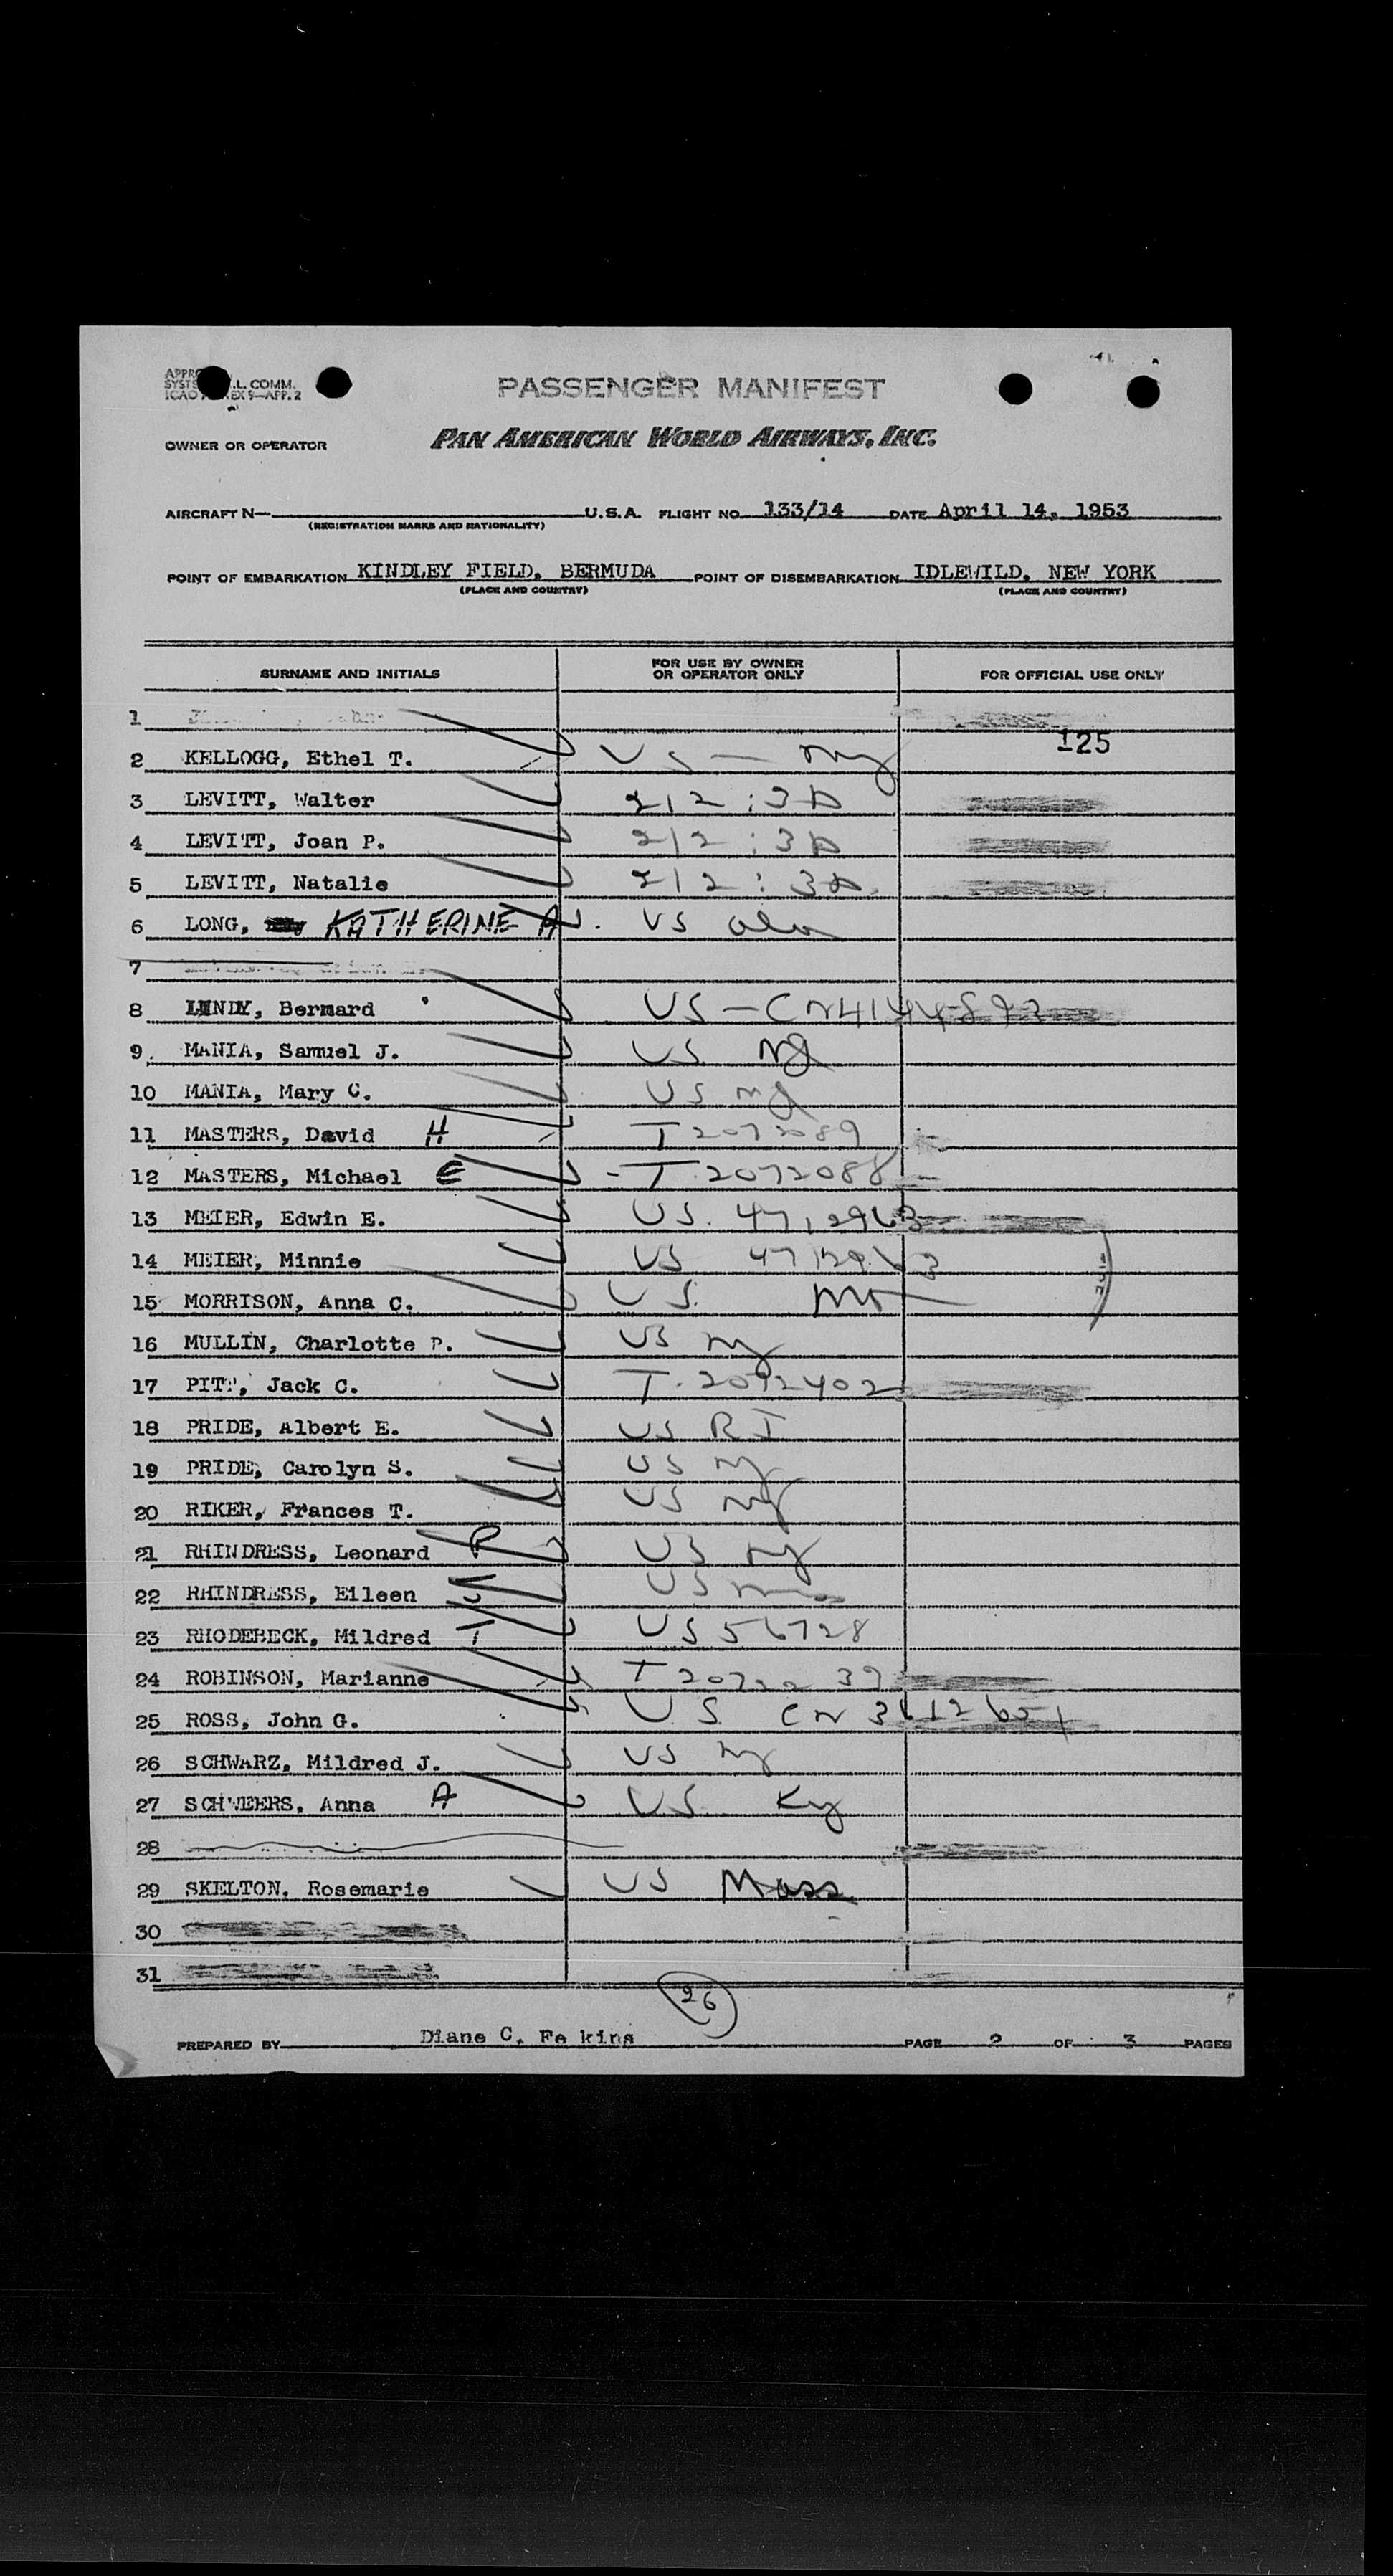 PASSENGER MANIFEST
L. COMM.
ICAO 9—APP. 2
OWNER OR OPERATOR PAN AMERICAN WORLD AIRWAYS, INC.
AIRCRAFT N— U.S.A. FLIGHT NO 133/14 DATE April 14, 1953
(REGISTRATION MARKS AND NATIONALITY)
POINT OF EMBARKATION KINDLEY FIELD, BERMUDA POINT OF DISEMBARKATION IDLEWILD, NEW YORK
(PLACE AND COUNTRY) (PLACE AND COUNTRY)
SURNAME AND INITIALS FOR USE BY OWNER OR OPERATOR ONLY FOR OFFICIAL USE ONLY
1
2 KELLOGG, Ethel T. US — NY 125
3 LEVITT, Walter 212:3D
4 LEVITT, Joan P. 212:3D
5 LEVITT, Natalie 212:3D
6 LONG, KATHERINE A. US
7
8 LUNDY, Bermard US —
9. MANIA, Samuel J. US NJ
10 MANIA, Mary C. US NJ
11 MASTERS, David H T 2072089
12 MASTERS, Michael E - T. 2072088
13 MEIER, Edwin E. US. 4712963
14 MEIER, Minnie US 4712963
15 MORRISON, Anna C. US.
16 MULLIN, Charlotte P. US NY
17 PITT, Jack C. T. 2072402
18 PRIDE, Albert E. US RI
19 PRIDE, Carolyn S. US NY
20 RIKER, Frances T. US NY
21 RHINDRESS, Leonard P US NY
22 RHINDRESS, Eileen US
23 RHODEBECK, Mildred T US 56728
24 ROBINSON, Marianne T 2072239
25 ROSS, John G. US CN
26 SCHWARZ, Mildred J. US NY
27 SCHWEERS, Anna A US Ky
28
29 SKELTON, Rosemarie US Mass
30
31
26
PREPARED BY Diane C. PAGE 2 OF 3 PAGES